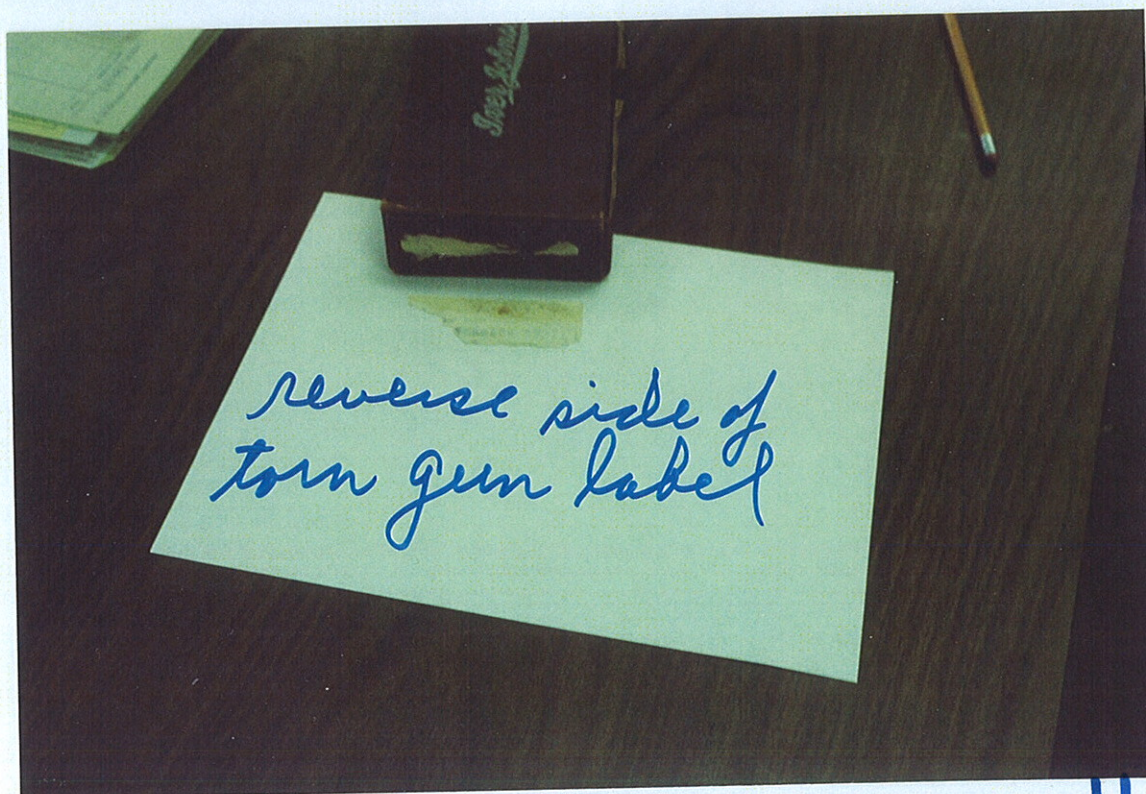 Iver Johnson
reverse side of
torn gun label